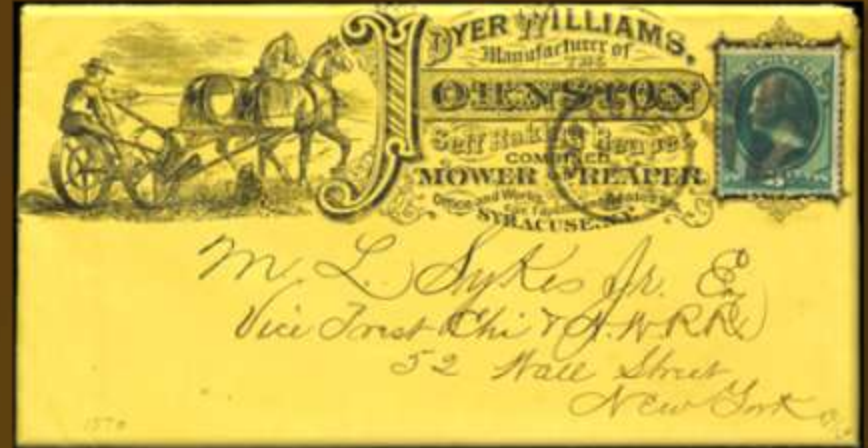 DYER WILLIAMS,
Manufacturer of
THE
JOHNSTON
Self Raking Reaper
COMBINED
MOWER AND REAPER
Office and Works,
SYRACUSE, N.Y.
M. L. Sykes Jr. Eq
Vice Prest Chi & N.W.R.R.
52 Wall Street
New York
1870